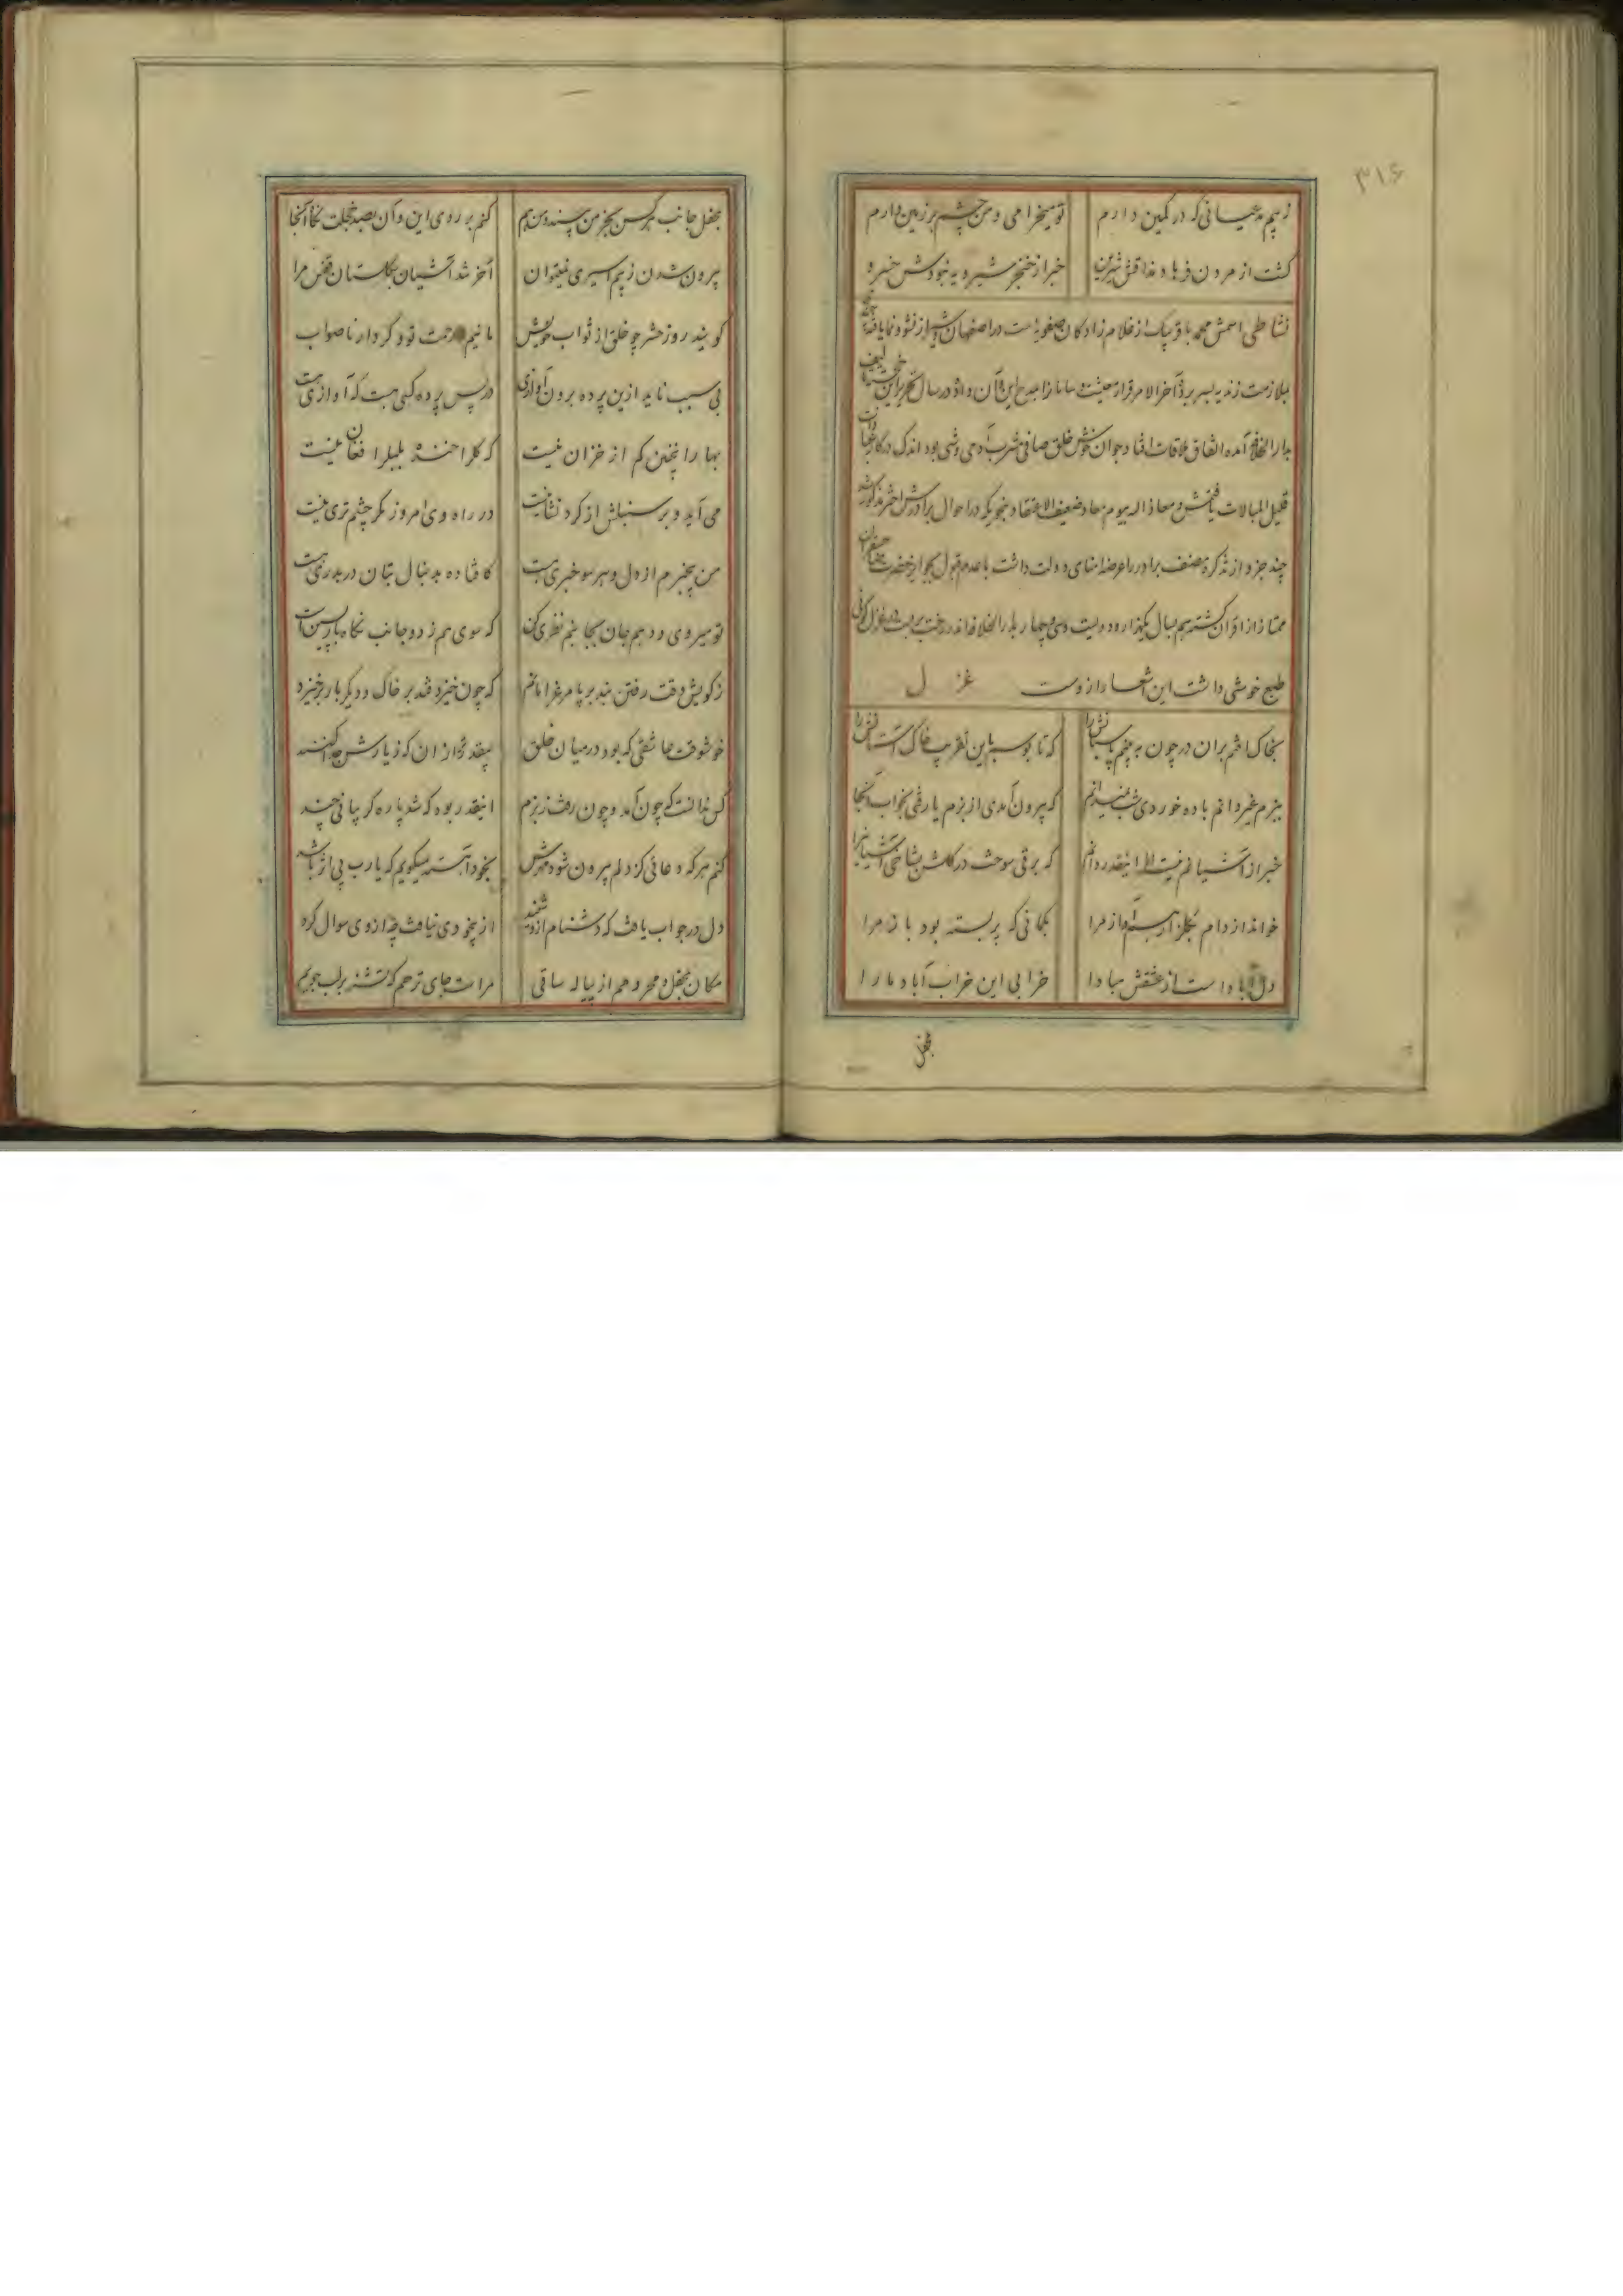 ۳۱۶
ز بیم مدعیانی که در کمین دارم تو میخرامی و من چشم بر زمین دارم
کشت از مردن فرهاد مذاقش شیرین خبر از خنجر شیرویه نبودش خسرو
نشاطی اسمش محمد باقر بیک از غلام زادکان صفویه است در اصفهان از نشو و نما یافته
بملازمت زندیه بسر برد آخر الامر قرار معیشت سامانرا بمدح این و آن داد در سال تحریر این
بدار الخلافه آمده اتفاق ملاقات افتاد جوان خوش خلق صافی مشرب آدمی وشی بود اندک در کار
قلیل المبالات یافتمش و معاذ الله بیوم معاد ضعیف الاعتقاد بنحویکه در احوال برادرش اختر مذکور شد
چند جزو از تذکره مصنف برادر را عرضه امنای دولت داشت با عدم قبول بجوایز حضرت
ممتاز از اقران کشته هم بسال یکهزار و دویست و سی و چهار بدار الخلافه در غزل کوئی
طبع خوشی داشت این اشعار از وست غزل
بخاک افتم بران در چون به بینم پاسبانش را که تا بوسم باین تقریب خاک آستانش را
ببزم غیر دانم باده خوردی شب نمیدانم که بیرون آمدی از بزم یا رفتی بخواب آنجا
خبر از آشیانم نیست اما اینقدر دانم که برقی سوخت در کلشن بشاخی آشیانیرا
خواند از دام بکلزار هم آواز مرا بکمانی که پر بسته بود باز مرا
دل آباد است از عشقش مبادا خرابی این خراب آباد ما را
بمحفل
بمحفل جانب هرکس بجز من بیند و من هم کنم بر روی این و آن بصد خجلت نکاه آنجا
بیرون شدن ز بیم اسیری نمیتوان آخر شد آشیان بکلستان قفس مرا
کویند روز حشر چو خلق از ثواب خویش مائیم و رحمت تو و کردار ناصواب
بی سبب ناید ازین پرده برون آوازی در پس پرده کسی هست که آوازی هست
بهار را چنین کم از خزان نیست که کل را خنده بلبل را فغان نیست
می آید و بر سنبلش از کرد نشانیست در راه وی امروز مکر چشم تری نیست
من بیخبرم از دل و هر سو خبری هست کافتاده بدنبال بتان در بدری هست
تو میروی و دهم جان بجانبم نظری کن که سوی هم ز دو جانب نکاه بازپسین است
ز کویش وقت رفتن بند بر پا مرغ را مانم که چون خیزد فتد بر خاک و دیکر بار برخیزد
خوشوقت عاشقی که بود در میان خلق بیقدر تر از ان که ز یارش جدا کنند
کس ندانست که چون آمد و چون رفت ز بزم اینقدر بود که شد پاره کریبانی چند
کنم هرکه دعائی کز دلم بیرون شود مهرش بخود آهسته میکویم که یا رب بی اثر باشد
دل در جواب یافت که دشنام ازو شنید از بیخودی نیافت چه از وی سوال کرد
مکان بمحفل و محروم از پیاله ساقی مراست جای ترحم که تشنه بر لب جویم